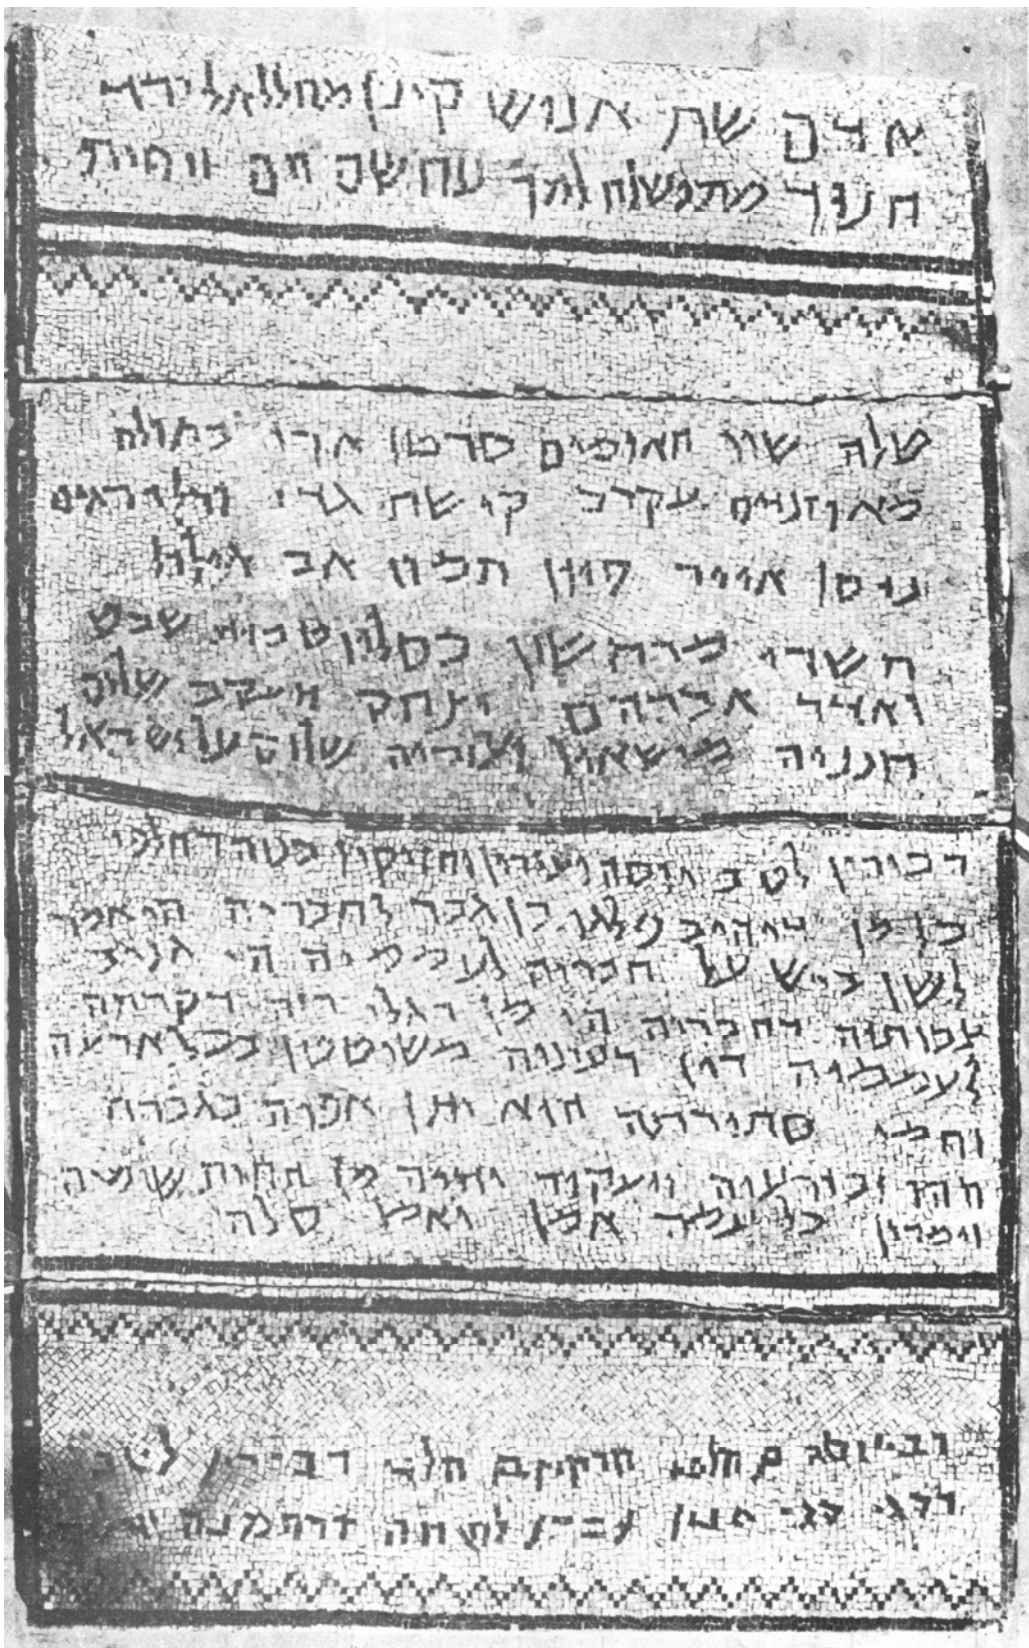 אדם שת אנוש קינן מהללאל ירד
חנוך מתושלח למך נוח שם חם ויפת
טלה שור תאומים סרטן ארי בתולה
מאוזניים עקרב קישת גדי ודלי דגים
ניסן אייר סיוון תמוז אב אילול
תשרי מרחשון כסליו טבית שבט
ואדר אברהם יצחק ויעקב שלום
חנניה מישאיל ועזריה שלום על ישראל
דכירין לטב יוסה ועזרין וחזיקיו בנוה דחלפי
כל מן דיהיב פלגו בן גבר לחבריה הי אמר
לשן ביש על חבריה לעממיה הי גניב
צבותיה דחבריה הי מן דגלי רזה דקרתה
לעממיה דין דעינוה משוטטן בכל ארעה
וחמי סתירתה הוא יתן אפוה בגברה
ההו ובזרעיה ויעקור יתיה מן תחות שומיה
וימרון כל עמה אמן ואמן סלה
רבי יוסה בן חלפי חזקיו בן חלפי דכירין לטב
סגי הנון עבדו לשמה דרחמנה